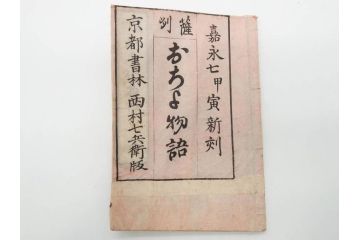 嘉永七甲寅新刻
薩州
おちよ物語
京都書林 西村七兵衛版